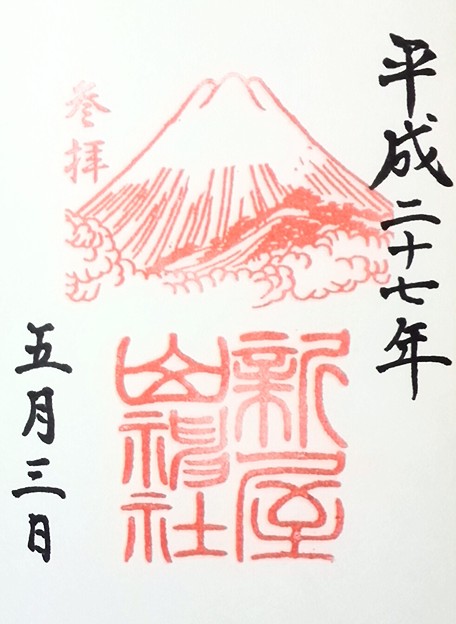 平成二十七年
参拝
新屋
山神社
五月三日